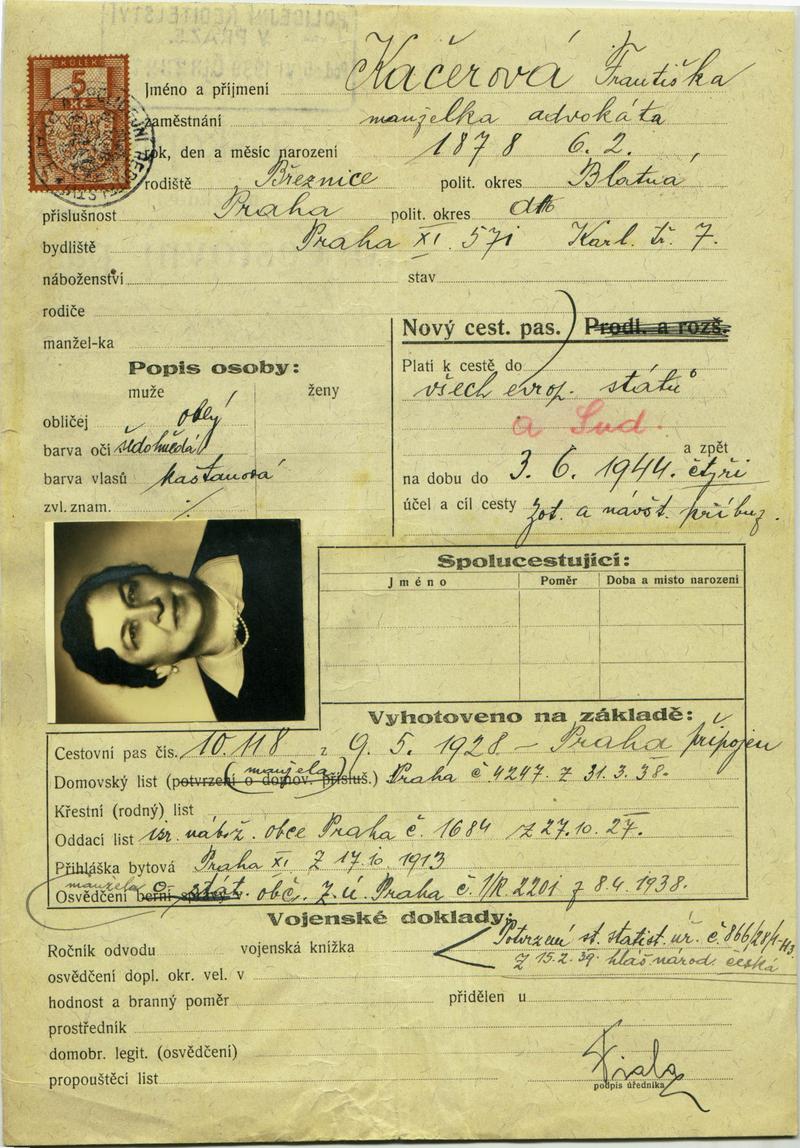 POLICEJNÍ ŘEDITELSTVÍ
V PRAZE
KOLEK
5
Kč
Jméno a příjmení Kačerová Františka
zaměstnání manželka advokáta
rok, den a měsíc narození 1878 6. 2.
rodiště Březnice polit. okres Blatná
příslušnost Praha polit. okres dtto
bydliště Praha XI. 571 Karl. tř. 7.
náboženství stav
rodiče
manžel-ka
Nový cest. pas. Prodl. a rozš.
Popis osoby:
muže ženy
obličej oblý
barva očí šedohnědá
barva vlasů kaštanová
zvl. znam. ./.
Platí k cestě do
všech evrop. států
a Sud.
a zpět
na dobu do 3. 6. 1944. čtyři
účel a cíl cesty zot. a návšt. příbuz.
Spolucestující:
Jméno Poměr Doba a místo narození
Vyhotoveno na základě:
Cestovní pas čís. 10.118 z 9. 5. 1928 – Praha připojen
manžela
Domovský list (potvrzení o domov. přísluš.) Praha č. 4247. z 31. 3. 38.
Křestní (rodný) list
Oddací list isr. nábož. obce Praha č. 1684 z 27. 10. 27.
Přihláška bytová Praha XI z 17. 10 1913
manžela
Osvědčení berní správy o stát. obč. z. ú. Praha č. 1/R. 2201 z 8. 4. 1938.
Vojenské doklady:
Potvrzení st. statist. úř. č. 866/28/1-H3.
z 15. 2. 39. hlás národ. česká
Ročník odvodu vojenská knížka
osvědčení dopl. okr. vel. v
hodnost a branný poměr přidělen u
prostředník
domobr. legit. (osvědčení)
propouštěcí list
Fiala
podpis úředníka